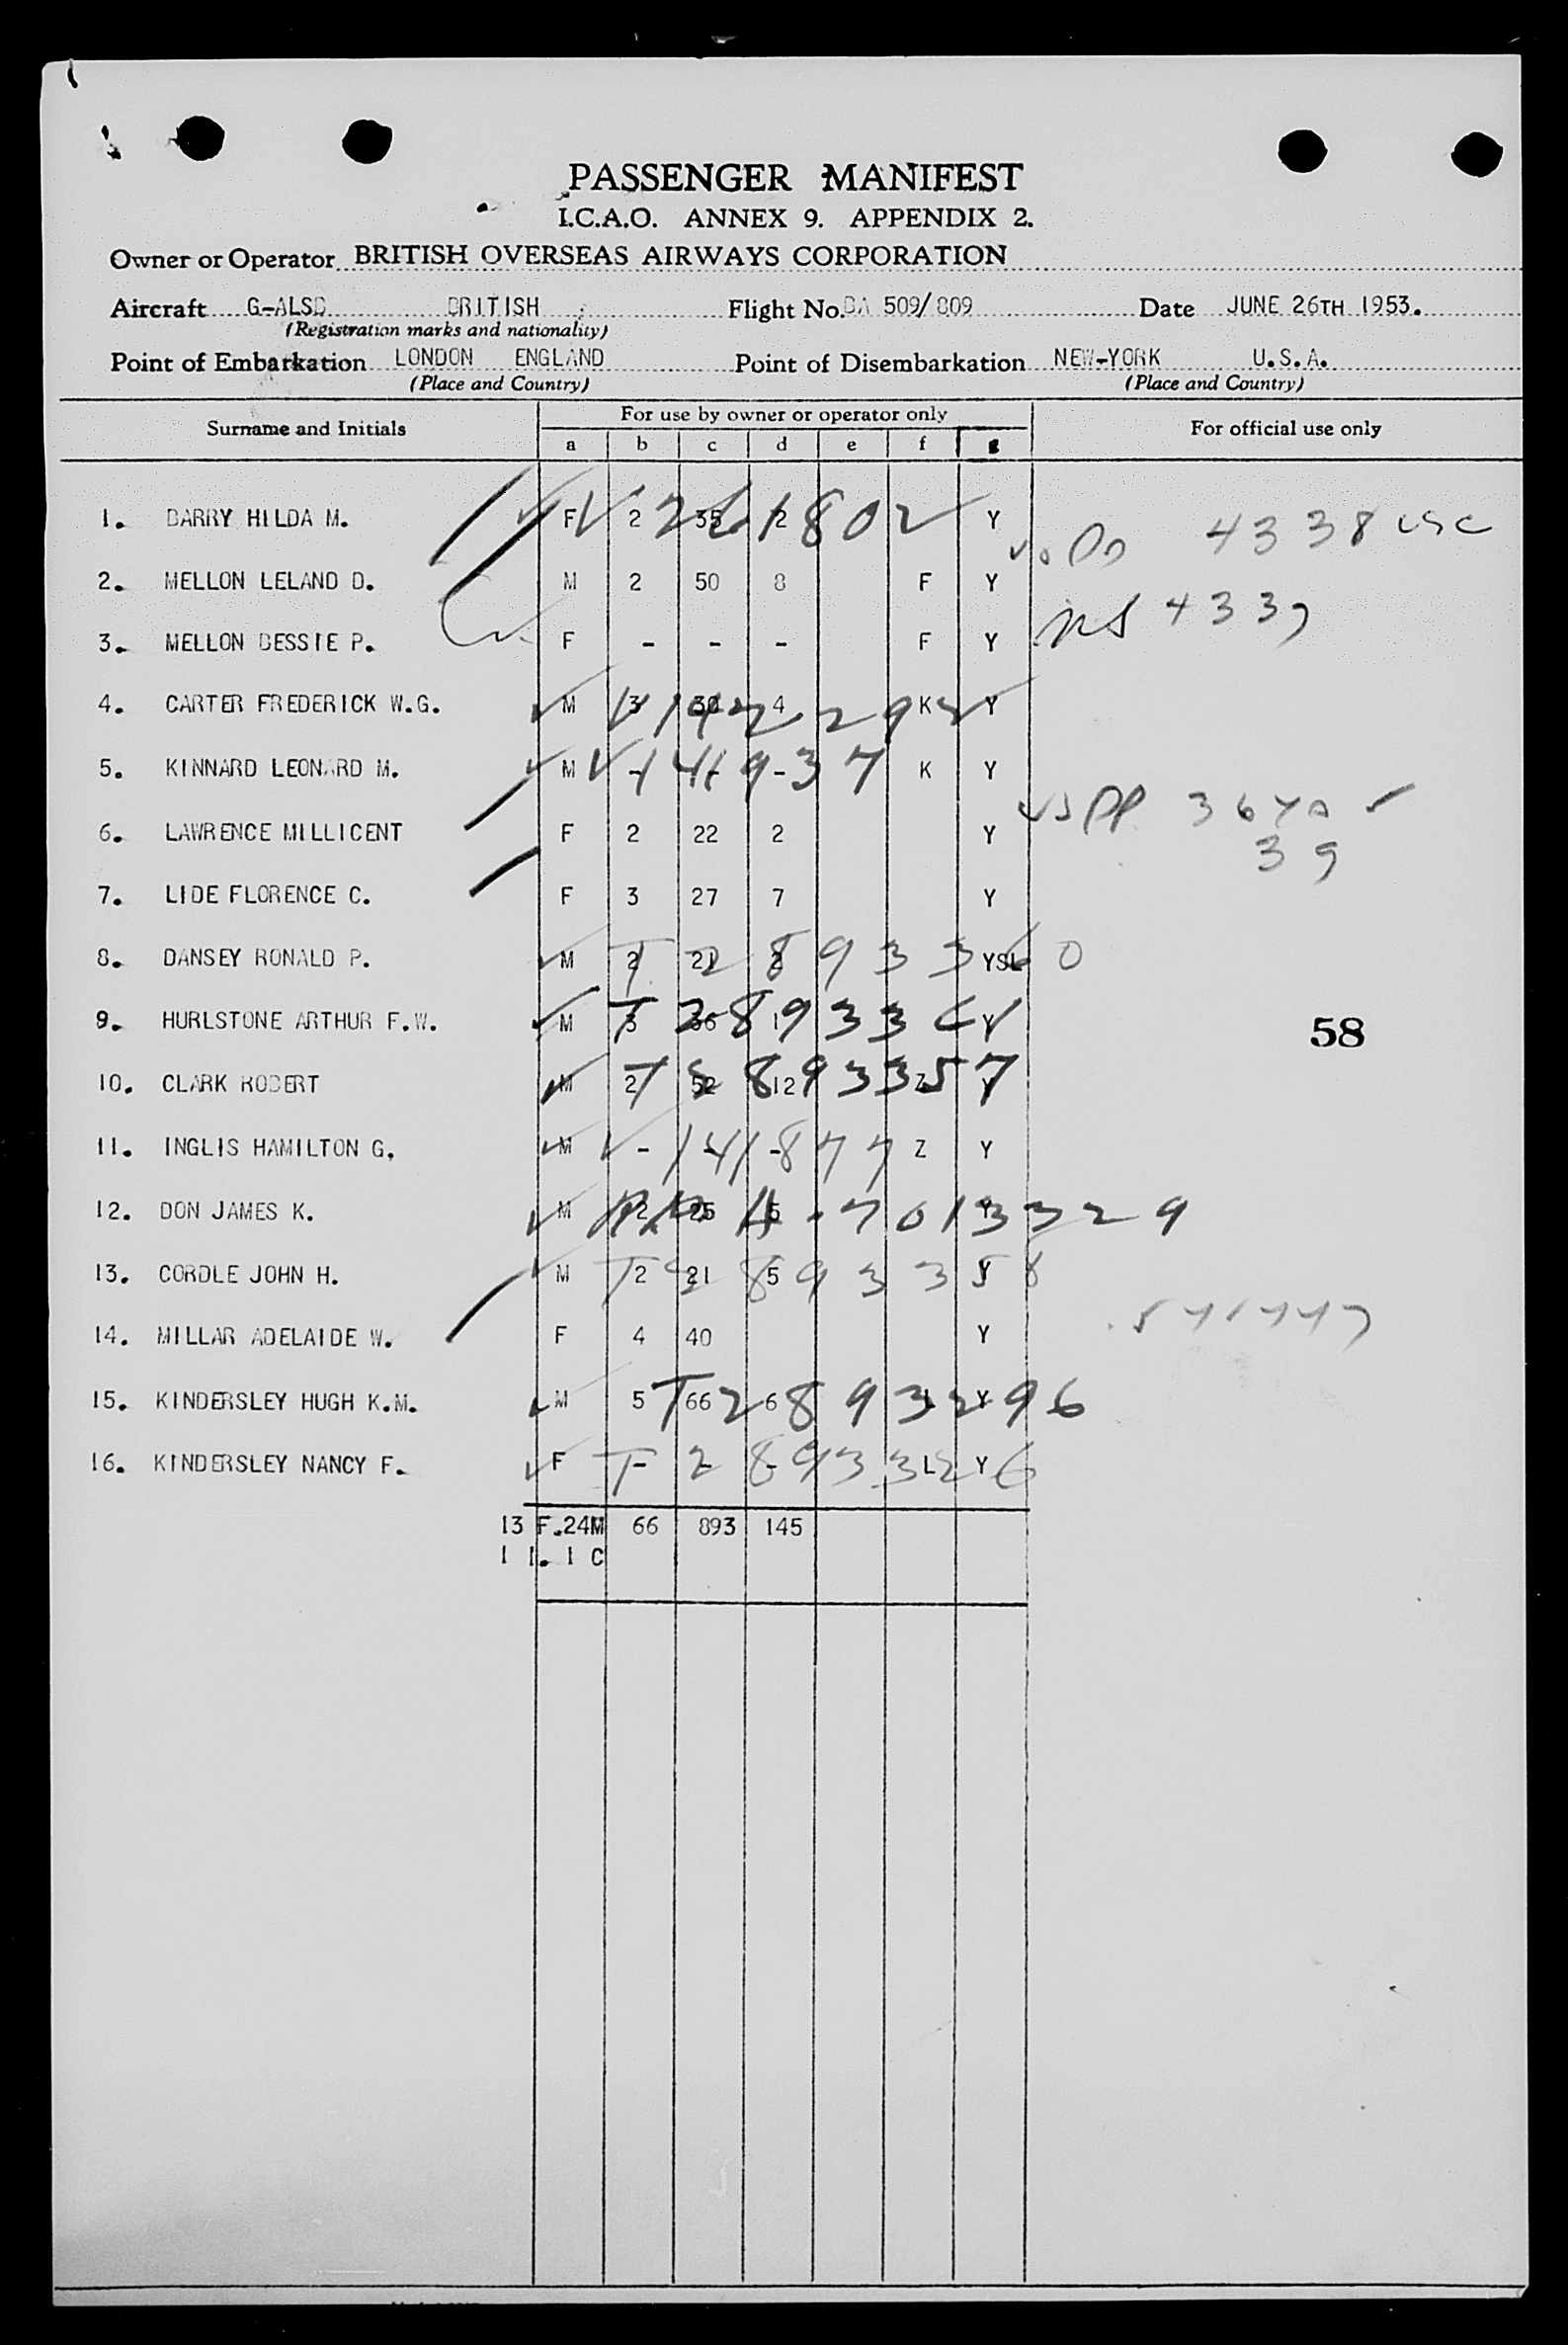 PASSENGER MANIFEST
I.C.A.O. ANNEX 9. APPENDIX 2.
Owner or Operator BRITISH OVERSEAS AIRWAYS CORPORATION
Aircraft G-ALSD BRITISH Flight No. BA 509/809 Date JUNE 26TH 1953.
(Registration marks and nationality)
Point of Embarkation LONDON ENGLAND Point of Disembarkation NEW-YORK U.S.A.
(Place and Country) (Place and Country)
Surname and Initials For use by owner or operator only For official use only
a b c d e f g
1. BARRY HILDA M. F 2 35 2 Y
4338 USC
2. MELLON LELAND D. M 2 50 8 F Y
4339
3. MELLON BESSIE P. F - - - F Y
4. CARTER FREDERICK W.G. M 3 30 4 K Y
5. KINNARD LEONARD M. M - - - K Y
V 141937
6. LAWRENCE MILLICENT F 2 22 2 Y
39
7. LIDE FLORENCE C. F 3 27 7 Y
8. DANSEY RONALD P. M 2 21 2 YSL
T 2893360
9. HURLSTONE ARTHUR F.W. M 3 36 1 Y
58
10. CLARK ROBERT M 2 52 12 Z Y
T 2893357
11. INGLIS HAMILTON G. M - - - Z Y
V 141877
12. DON JAMES K. M 2 25 5 Y
13. CORDLE JOHN H. M 2 21 5 Y
T 2893358
14. MILLAR ADELAIDE W. F 4 40 Y
15. KINDERSLEY HUGH K.M. M 5 66 6 L Y
T 2893296
16. KINDERSLEY NANCY F. F - - - L Y
T 2893326
13 F.24M 66 893 145
1 I. 1 C